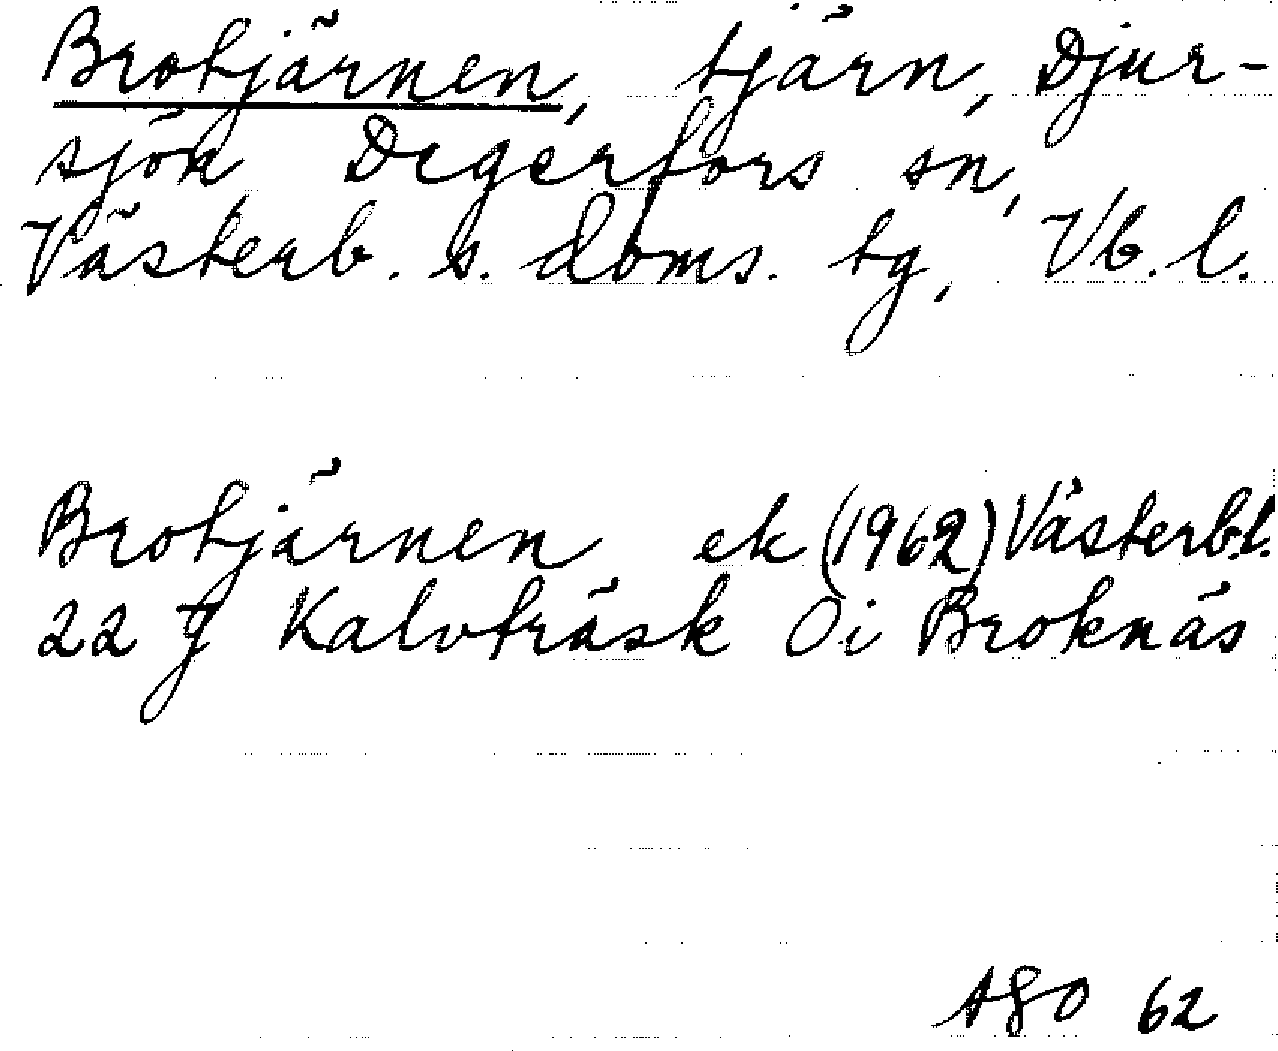 Brotjärnen, tjärn, Djur-
sjön Degerfors sn,
Västerb. s. doms. tg, Vb. l.
Brotjärnen ek (1962) Västerbt.
22 J Kalvträsk Öi Broknäs
62